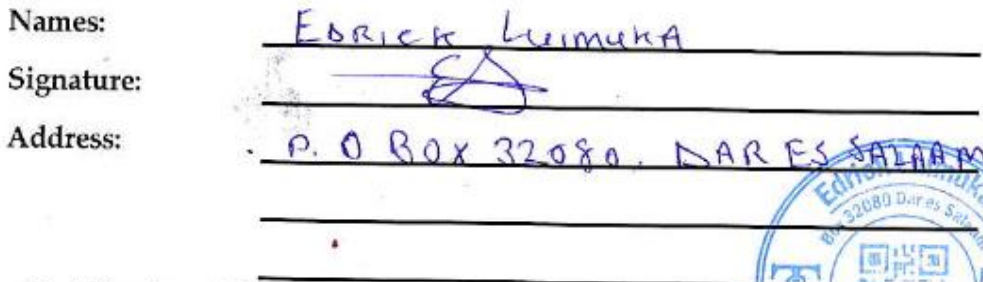 Names: EDRICK LUIMUKA
Signature:
Address: P. O BOX 32080. DAR ES SALAAM
Box 32080 Dar es Salaam